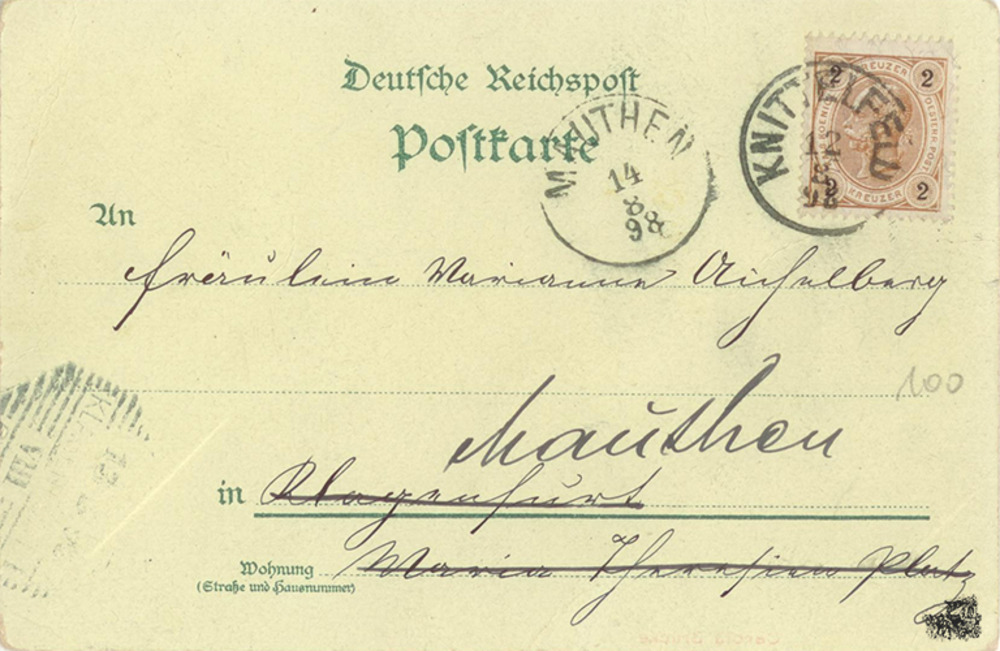 Deutsche Reichspost
Postkarte
MAUTHEN
14
8
98
KNITTELFELD
12
8
98
2 KREUZER 2
2 KREUZER 2
An
Fräulein Marianne Aichelberg
100
Mauthen
in Klagenfurt
Wohnung Maria Theresien Platz
(Straße und Hausnummer)